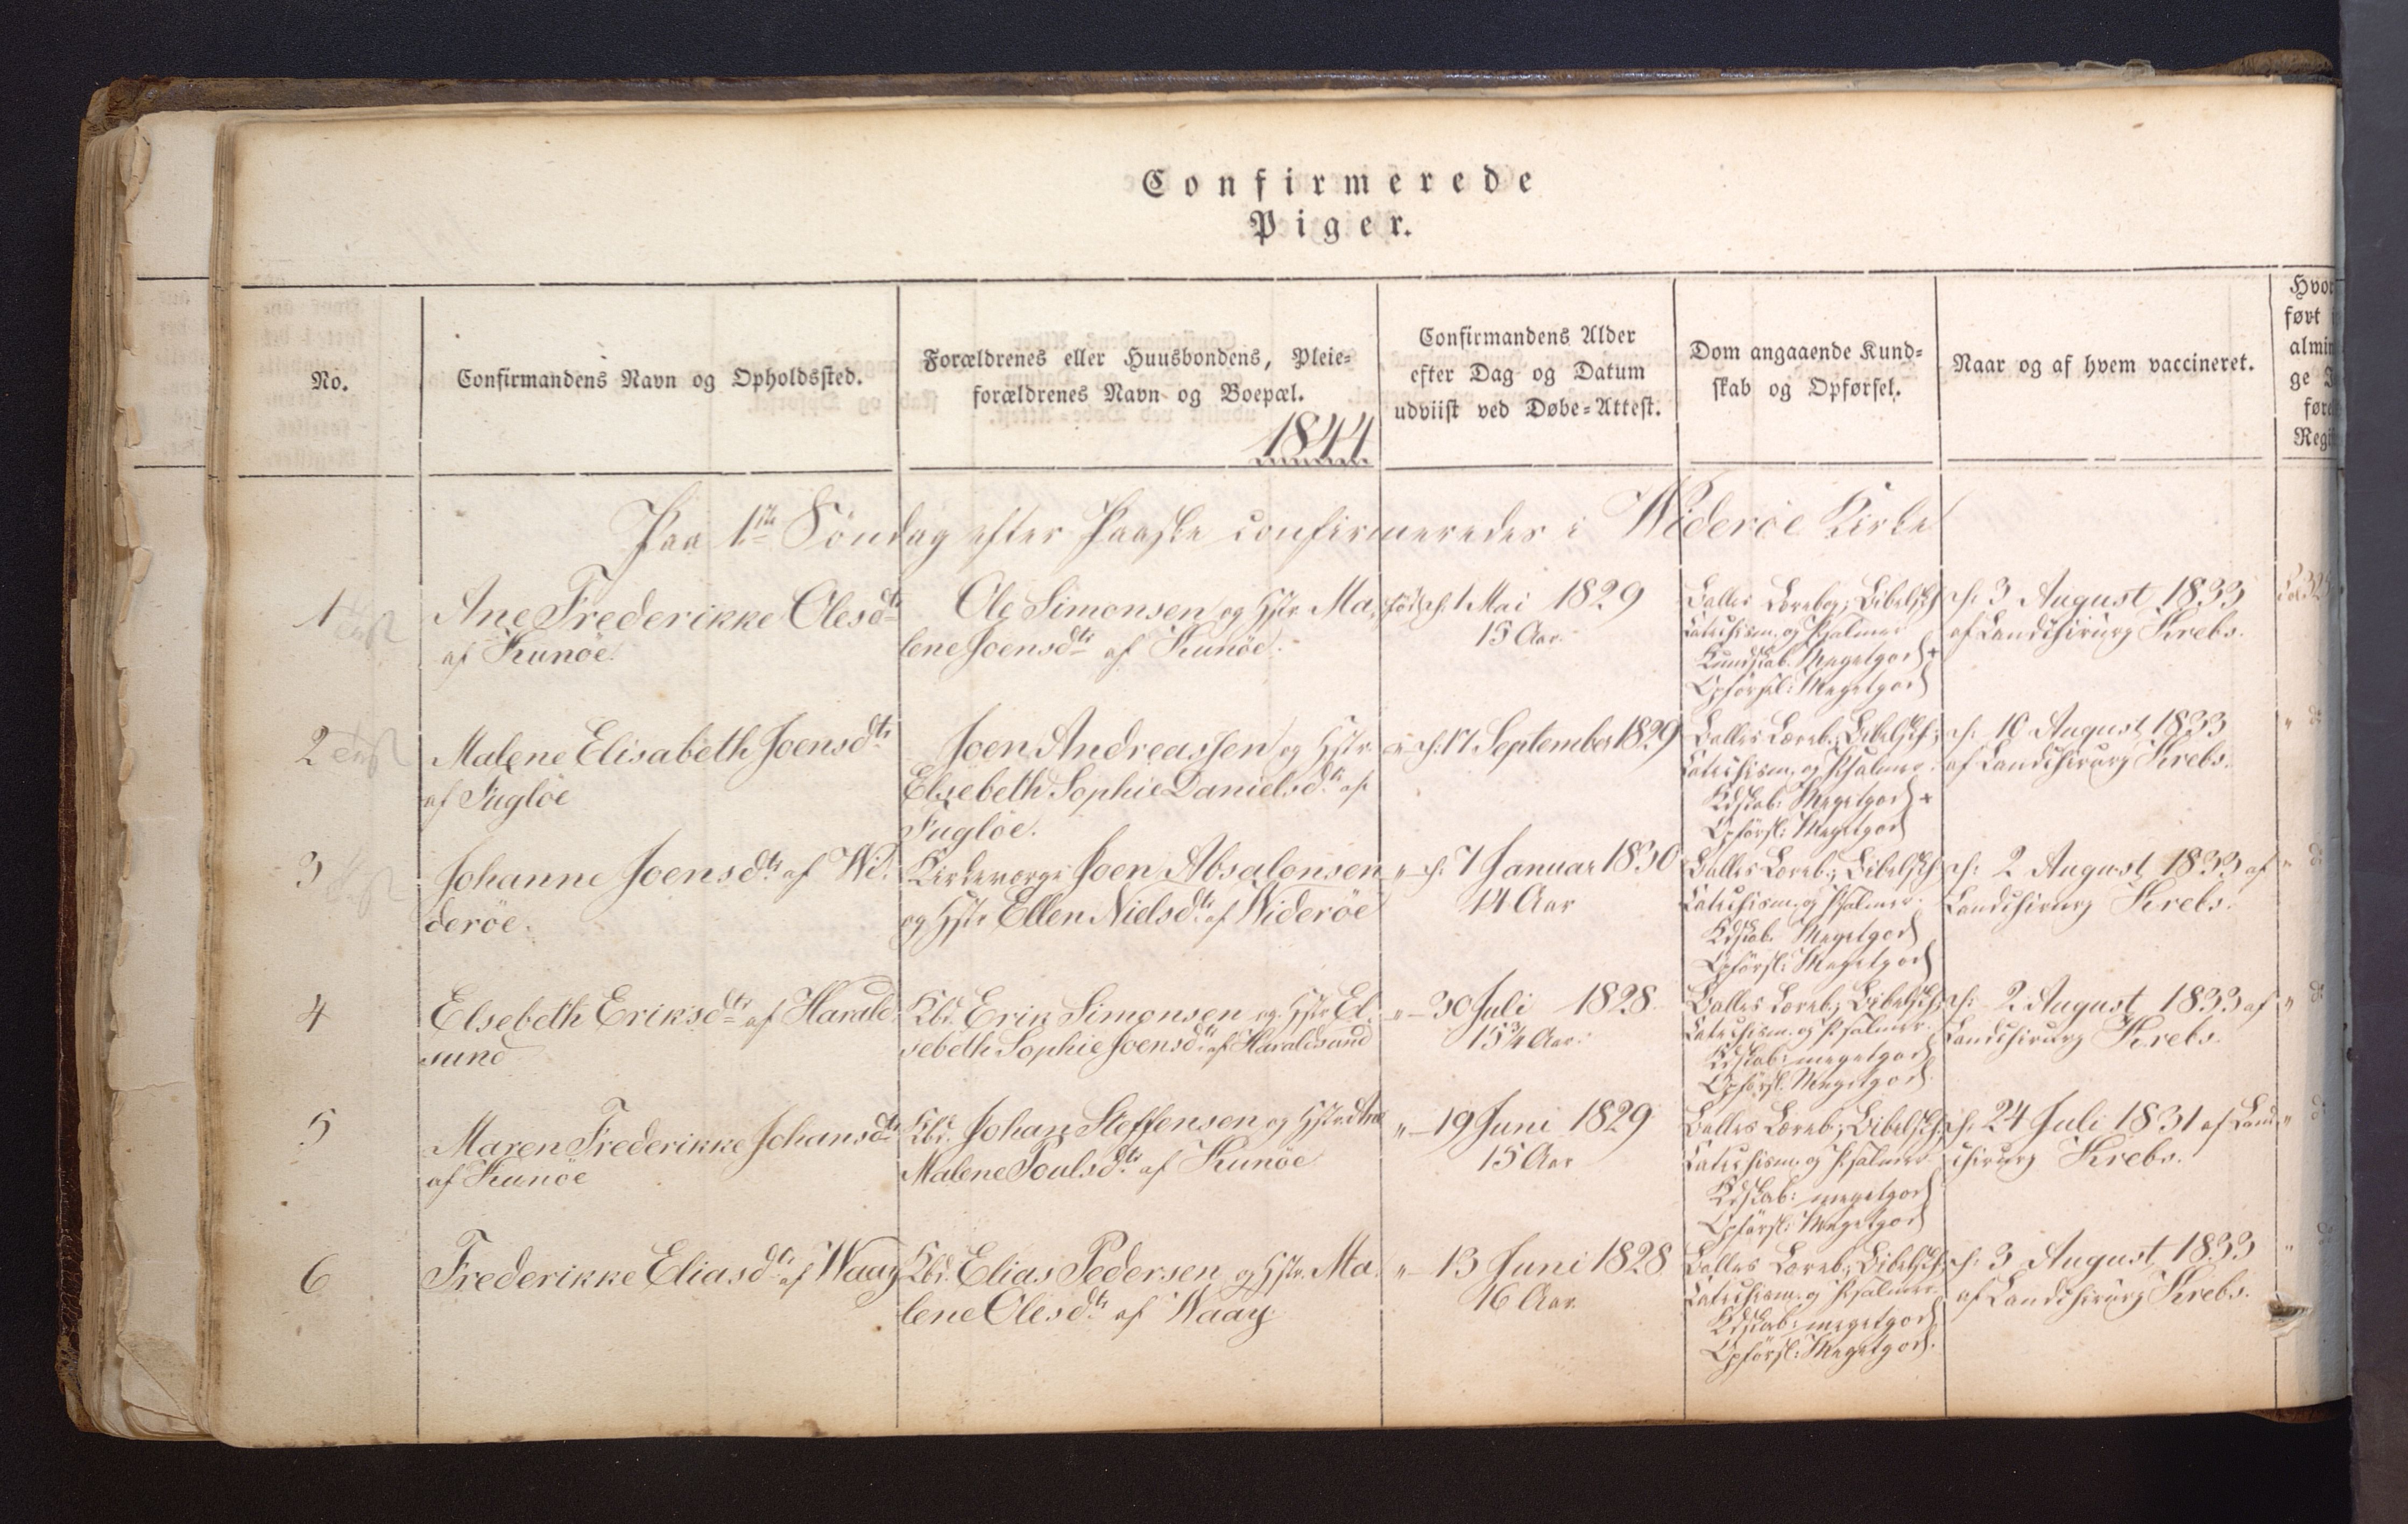 Confirmerede
Piger.
No.
Confirmandens Navn og Opholdssted.
Forældrenes eller Huusbondens, Pleie=
forældrenes Navn og Boepæl.
1844
Confirmandens Alder
efter Dag og Datum
udviist ved Døbe=Attest.
Dom angaaende Kund=
skab og Opførsel.
Naar og af hvem vaccineret.
Hvor
ført
almin
ge
føre
Regi
Paa 1ste Söndag efter Paaske confirmeredes i Wideröe Kirke
1
Ane Frederikke Olesdtr
af Kunöe.
Ole Simonsen og Hstr Ma,
lene Joensdtr af Kunöe.
född d: 1 Mai 1829
15 Aar
Balles Lærebog; Bibelsth
Catechism. og Psalmer
Kundskab. Megetgod +
Opförsel: Megetgod
d: 3 August 1833
af Landchirurg Krebs.
2
Malene Elisabeth Joensdtr
af Fuglöe
Joen Andreassen og Hstr
Elsebeth Sophie Danielsdtr af
Fuglöe.
" d: 17 September 1829
Balles Læreb.; Bibelsth;
Catechism. og Psalmer.
Kdskab: Megetgod +
Opförsl: Megetgod
d: 10 August 1833
af Landchirurg Krebs.
" do
3
Johanne Joensdtr af Wi,
deröe.
Kirkeværge Joen Absalonsen
og Hstr Ellen Nielsdtr af Wideröe
" d: 7 Januar 1830
14 Aar
Balles Læreb.; Bibelsth
Catechism. og Psalmer.
Kdskab. Megetgod
Opförsl: Megetgod
d: 2 August 1833 af
Landchirurg Krebs.
" do
4
Elsebeth Eriksdtr af Harald
sund
Kbd. Erik Simonsen og Hstr El,
sebeth Sophie Joensdtr af Haraldsund
" — 30 Juli 1828.
15¾ Aar.
Balles Læreb; Bibelsth;
Catechism. og Psalmer.
Kdskab: megetgod
Opförsl. Megetgod.
d: 2 August 1833 af
Landchirurg Krebs.
" do
5
Maren Frederikke Johansdtr
af Kunöe
Kbd. Johan Steffensen og Hstr Ane
Malene Poulsdtr af Kunöe
" — 19 Juni 1829
15 Aar
Balles Læreb; Bibelsth;
Catechism. og Psalmer
Kdskab: megetgod
Opförsl: Megetgod
d: 24 Juli 1831 af Land,
chirurg Krebs.
" do
6
Frederikke Eliasdtr af Waay
Kbd. Elias Pedersen og Hstr. Ma,
lene Olesdtr af Waay
" — 13 Juni 1828
16 Aar.
Balles Læreb; Bibelsth;
Catechism. og Psalmer.
Kdskab: megetgod
Opförsl: Megetgod.
d: 3 August 1833
af Landchirurg Krebs.
" do